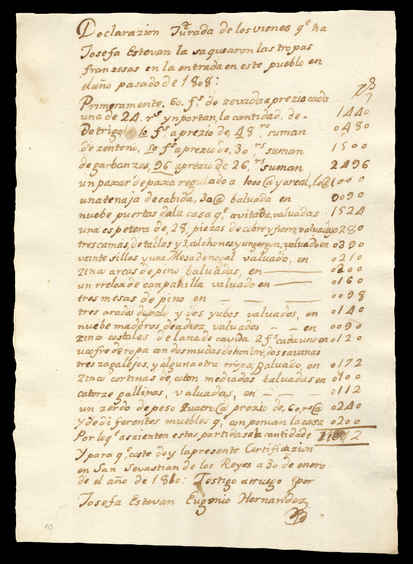 Declarazion Jurada de los vienes qe ha
Josefa Estevan la saquearon las tropas
franzesas en la entrada en este pueblo en
el año pasado de 1808:
Rs
Primeramente. 60. fs de zevada aprezio cada
una de 24. rs ynportan la cantidad. de - 1440
De trigo 10 fs aprezio de 48 rs suman 0480
de zenteno, 50 fs aprezio de, 30 rs suman 1500
de garbanzos, 96 aprezio de 26, rs suman 2496
un pajar de paja regulado a 1000 @ y a real, 1000
una tenaja de cabida, 30 @ baluada en 0090
nuebe puertas de la casa qe avitaba, valuadas 1524
una espetera de, 25, piezas de cobre y fierro, valuada 0280
tres camas, de tablas y 2, colchones y un gergon, valuado en 0390
vante sillas y una Mesa de nogal valuado, en 0210
zinco arcas de pino baluadas, en 0200
un rrelox de canpanilla valuado en 0160
tres mesas de pino en 0098
tres arados y dos yubos valuados, en 0140
nuebe maderos de adiez, valuados - - en 0090
zinco costales de lana de cavida 2 fs cada uno en 0120
un cofre de ropa con dos mudas de hombre, dos savanas
tres zagalejos, y alguna otra rropa, baluado, en 0172
zinco cortinas de coton mediadas baluadas en 0100
catorze gallinas, valuadas, en 0112
un zerdo de peso quatro @ prezio de, 60, rs @ 0240
y de diferentes muebles qe conponian la casa 0200
Por lo qe aszienten estas partidas ala cantidad de
Y para qe coste doy la presente Certificazion
en San Sevastian de los Reyes a 30 de enero
de el año de 1810: Testigo arruego i por
Josefa Estevan Eugenio Hernandez